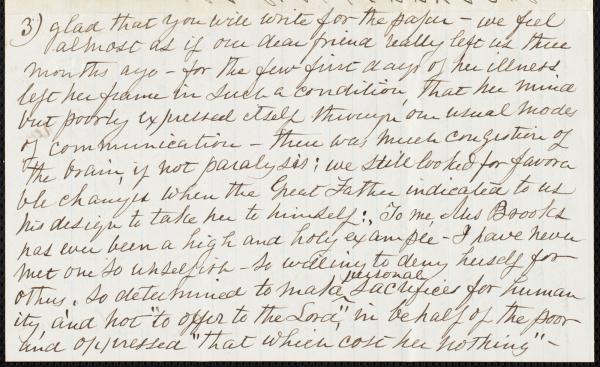 3) glad that you will write for the paper - we feel
almost as if our dear friend really left us three
months ago - for the few first days of her illness
left her frame in such a condition, that her mind
but poorly expressed itself through our usual modes
of communication - there was much congestion of
the brain, if not paralysis; we still looked for favora
ble changes when the Great Father indicated to us
his design to take her to himself: To me, Mrs Brooks
has ever been a high and holy example - I have never
met one so unselfish - so willing to deny herself for
others, so determined to make personal sacrifices for human
ity, and not "to offer to the Lord," in behalf of the poor
and oppressed "that which cost her nothing" -